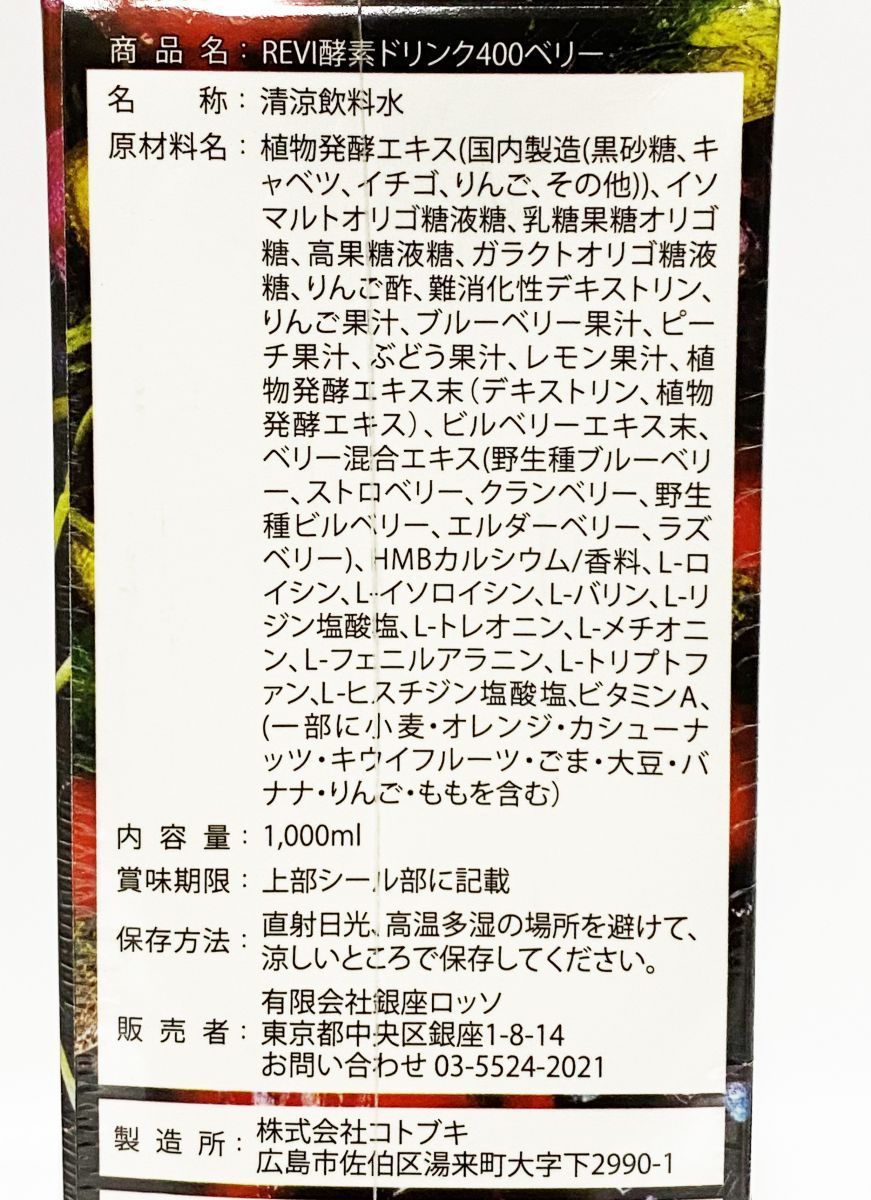 商品名：REVI酵素ドリンク400ベリー
名称：清涼飲料水
原材料名：植物発酵エキス(国内製造(黒砂糖、キ
ャベツ、イチゴ、りんご、その他))、イソ
マルトオリゴ糖液糖、乳糖果糖オリゴ
糖、高果糖液糖、ガラクトオリゴ糖液
糖、りんご酢、難消化性デキストリン、
りんご果汁、ブルーベリー果汁、ピー
チ果汁、ぶどう果汁、レモン果汁、植
物発酵エキス末（デキストリン、植物
発酵エキス）、ビルベリーエキス末、
ベリー混合エキス(野生種ブルーベリ
ー、ストロベリー、クランベリー、野生
種ビルベリー、エルダーベリー、ラズ
ベリー)、HMBカルシウム/香料、L-ロ
イシン、L-イソロイシン、L-バリン、L-リ
ジン塩酸塩、L-トレオニン、L-メチオニ
ン、L-フェニルアラニン、L-トリプトフ
ァン、L-ヒスチジン塩酸塩、ビタミンA、
(一部に小麦・オレンジ・カシューナ
ッツ・キウイフルーツ・ごま・大豆・バ
ナナ・りんご・ももを含む）
内容量：1,000ml
賞味期限：上部シール部に記載
保存方法：直射日光、高温多湿の場所を避けて、
涼しいところで保存してください。
販売者：有限会社銀座ロッソ
東京都中央区銀座1-8-14
お問い合わせ 03-5524-2021
製造所：株式会社コトブキ
広島市佐伯区湯来町大字下2990-1